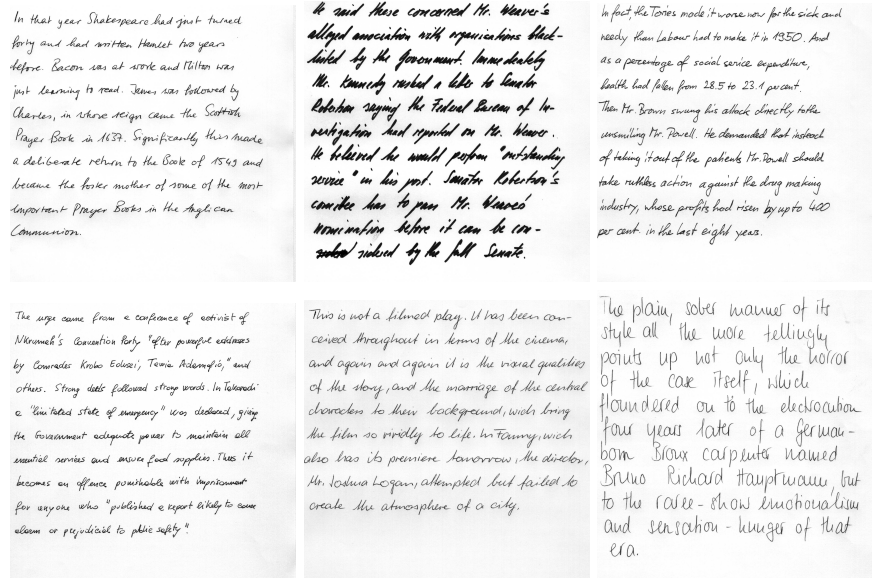 In that year Shakespeare had just turned
forty and had written Hamlet two years
before. Bacon was at work and Milton was
just learning to read. James was followed by
Charles, in whose reign came the Scottish
Prayer Book in 1637. Significantly this made
a deliberate return to the Book of 1549 and
became the foster mother of some of the most
important Prayer Books in the Anglican
Communion.
He said these concerned Mr. Weaver's
alleged association with organisations black-
listed by the Government. Immediately
Mr. Kennedy rushed a letter to Senator
Robertson saying the Federal Bureau of In-
vestigation had reported on Mr. Weaver.
He believed he would perform "outstanding
service" in his post. Senator Robertson's
comittee has to pass Mr. Weaver's
nomination before it can be con-
sidered by the full Senate.
In fact, the Tories made it worse now for the sick and
needy than Labour had to make it in 1950. And
as a percentage of social service expenditure,
health had fallen from 28.5 to 23.1 percent.
Then Mr. Brown swung his attack directly to the
unsmiling Mr. Powell. He demanded that instead
of taking it out of the patients Mr. Powell should
take ruthless action against the drug making
industry, whose profits had risen by up to 400
per cent. in the last eight years.
The urge came from a conference of activist of
Nkrumah's Convention Party "after powerful addresses
by Comrades Krobo Edusei, Tawia Adamafio," and
others. Strong deeds followed strong words. In Takoradi
a "limitated state of emergency" was declared, giving
the Government adequate power to maintain all
essential services and ensure food supplies. Thus it
becomes an offence punishable with imprisonment
for anyone who "published a report likely to cause
alarm or prejudicial to public safety".
This is not a filmed play. It has been con-
ceived throughout in terms of the cinema,
and again and again it is the visual qualities
of the story, and the marriage of the central
characters to their background, wich bring
the film so vividly to life. In Fanny, wich
also has its premiere tomorrow, the director,
Mr. Joshua Logan, attempted but failed to
create the atmosphere of a city.
The plain, sober manner of its
style all the more tellingly
points up not only the horror
of the case itself, which
floundered on to the electrocution
four years later of a German-
born Bronx carpenter named
Bruno Richard Hauptmann, but
to the raree-show emotionalism
and sensation-hunger of that
era.